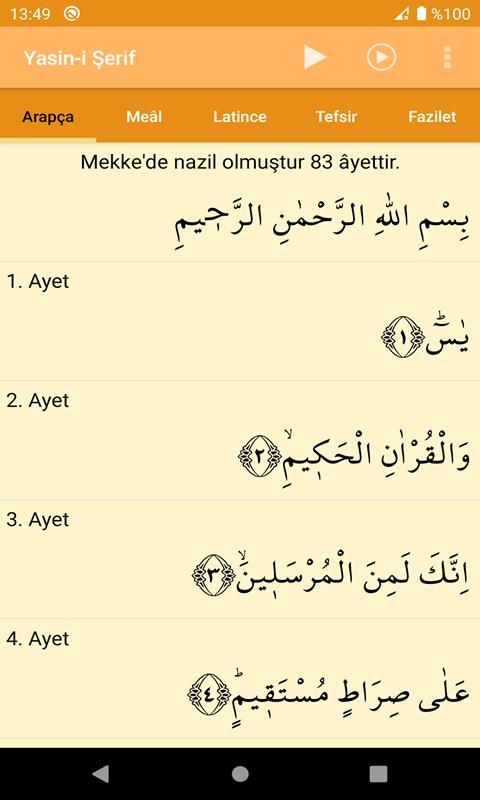 13:49 %100
Yasin-i Şerif
Arapça Meâl Latince Tefsir Fazilet
Mekke'de nazil olmuştur 83 âyettir.
بِسْمِ اللّٰهِ الرَّحْمٰنِ الرَّح۪يمِ
1. Ayet
يٰسٓۜ ﴿١﴾
2. Ayet
وَالْقُرْاٰنِ الْحَك۪يمِۙ ﴿٢﴾
3. Ayet
اِنَّكَ لَمِنَ الْمُرْسَل۪ينَۙ ﴿٣﴾
4. Ayet
عَلٰى صِرَاطٍ مُسْتَق۪يمٍۜ ﴿٤﴾